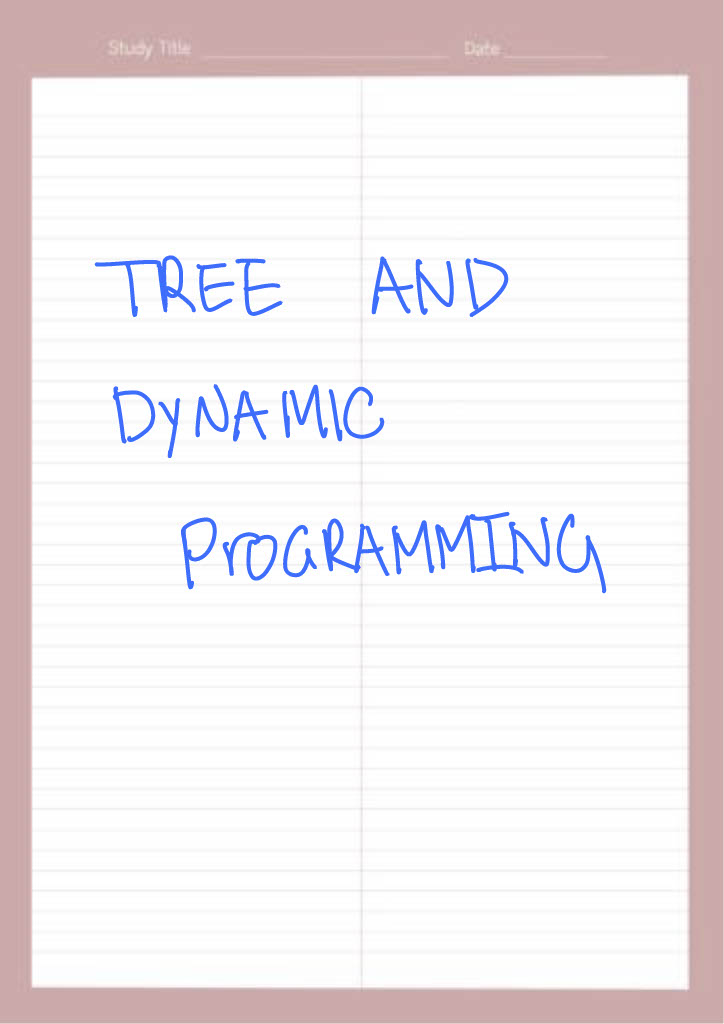 Study Title Date
TREE AND
DYNAMIC
PROGRAMMING